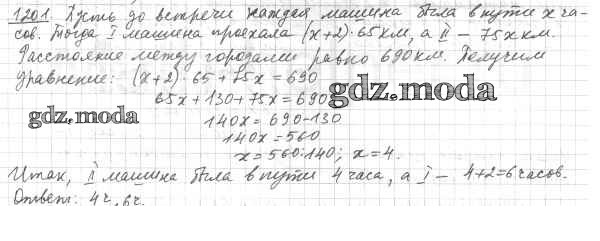 1201. Пусть до встречи каждая машина была в пути x ча-
сов. Тогда I машина проехала (x+2)·65км, а II – 75x км.
Расстояние между городами равно 690км. Получим
уравнение: (x+2)·65+75x=690
65x+130+75x=690
gdz.moda
gdz.moda
140x=690-130
140x=560
x=560:140; x=4.
Итак, II машина была в пути 4 часа, а I – 4+2=6 часов.
Ответ: 4ч, 6ч.